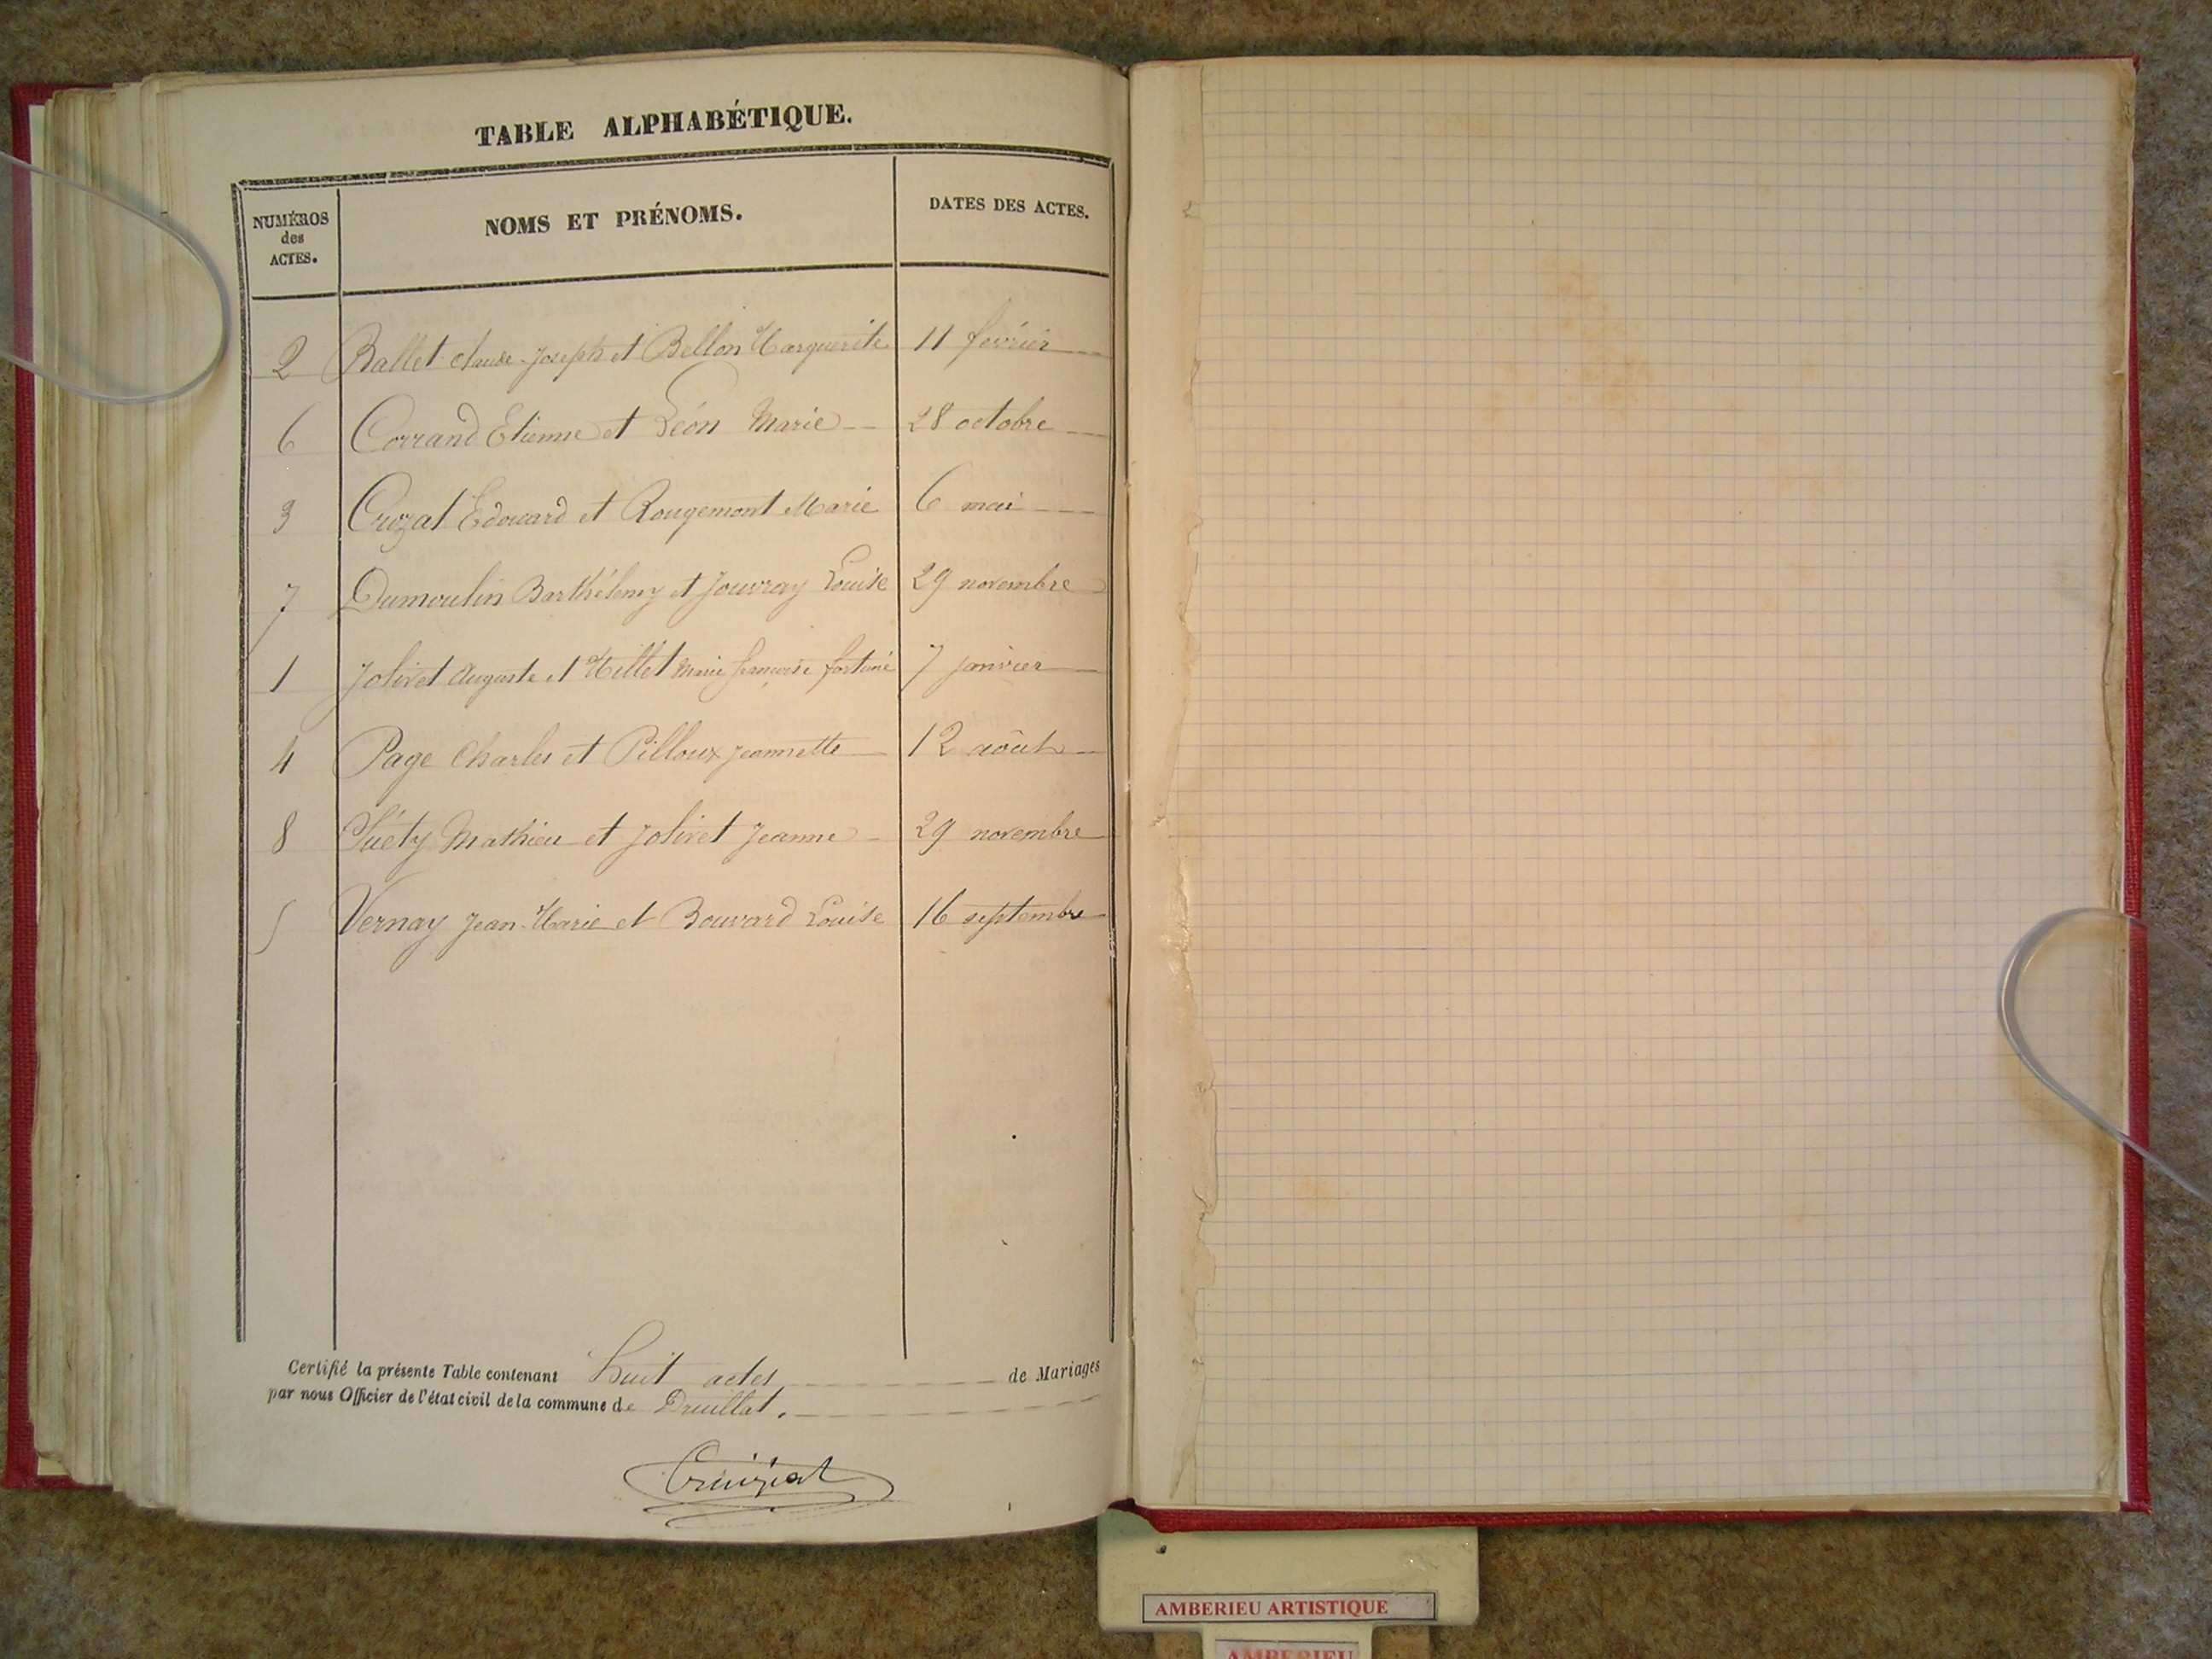 TABLE ALPHABÉTIQUE.
NUMÉROS des ACTES. NOMS ET PRÉNOMS. DATES DES ACTES.
2 Ballet Claude-Joseph et Bellon Marguerite 11 février
6 Corrand Etienne et Léon Marie 28 octobre
3 Cruzat Edouard et Rougemont Marie 6 mai
7 Dumoulin Barthélemy et Jouvray Louise 29 novembre
1 Jolivet Auguste et Millet Marie françoise 7 janvier
4 Page Charles et Pilloux Jeannette 12 août
8 Mathieu et Jolivet Jeanne 29 novembre
5 Vernay Jean-Marie et Bouvard Louise 16 septembre
Certifié la présente Table contenant huit actes de Mariages
par nous Officier de l'état civil de la commune de Druillat.
AMBERIEU ARTISTIQUE
AMBERIEU